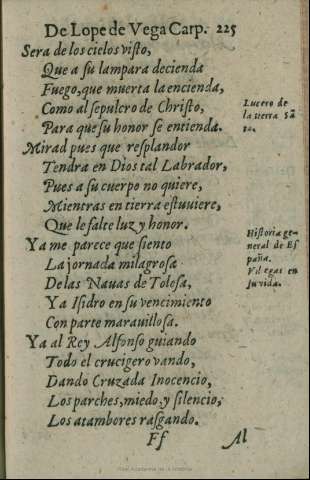 De Lope de Vega Carp. 225
Sera de los cielos visto,
Que a su lampara decienda
Fuego, que muerta la encienda,
Como al sepulcro de Christo,
Para que su honor se entienda.
Mirad pues que resplandor
Tendra en Dios tal Labrador,
Pues a su cuerpo no quiere,
Mientras en tierra estuuiere,
Que le falte luz y honor.
Ya me parece que siento
La jornada milagrosa
De las Nauas de Tolosa,
Ya Isidro en su vencimiento
Con parte marauillosa.
Ya al Rey Alfonso guiando
Todo el crucigero vando,
Dando Cruzada Inocencio,
Los parches, miedo, y silencio,
Los atambores rasgando.
Ff
Al
Lucero de
la tierra Sã
ta.
Historia ge-
neral de Es
paña.
Villegas en
su vida.
Real Academia de la Historia